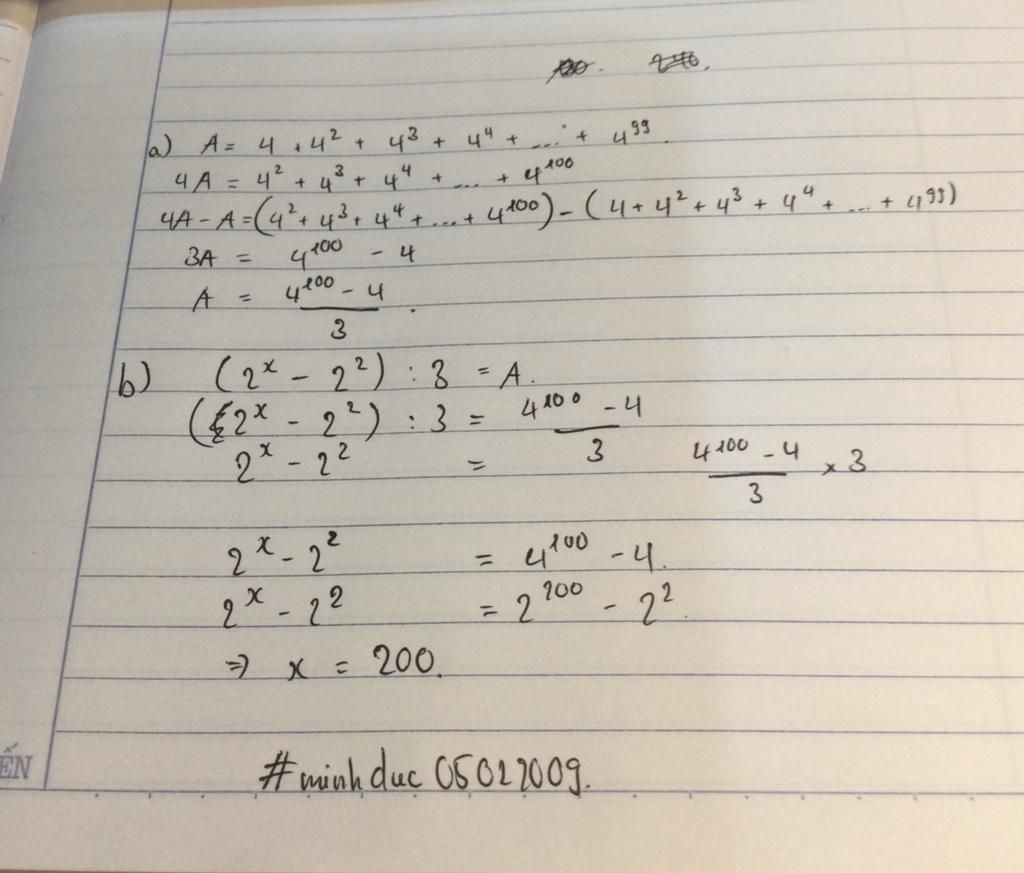 a) A = 4 + 4² + 4³ + 4⁴ + ... + 4⁹⁹.
4A = 4² + 4³ + 4⁴ + ... + 4¹⁰⁰
4A - A = (4² + 4³ + 4⁴ + ... + 4¹⁰⁰) - (4 + 4² + 4³ + 4⁴ + ... + 4⁹⁹)
3A = 4¹⁰⁰ - 4
A = (4¹⁰⁰ - 4)/3.
b) (2ˣ - 2²) : 3 = A.
(2ˣ - 2²) : 3 = (4¹⁰⁰ - 4)/3
2ˣ - 2² = (4¹⁰⁰ - 4)/3 × 3
2ˣ - 2² = 4¹⁰⁰ - 4.
2ˣ - 2² = 2²⁰⁰ - 2².
⇒ x = 200.
ẾN
#minhduc05022009.